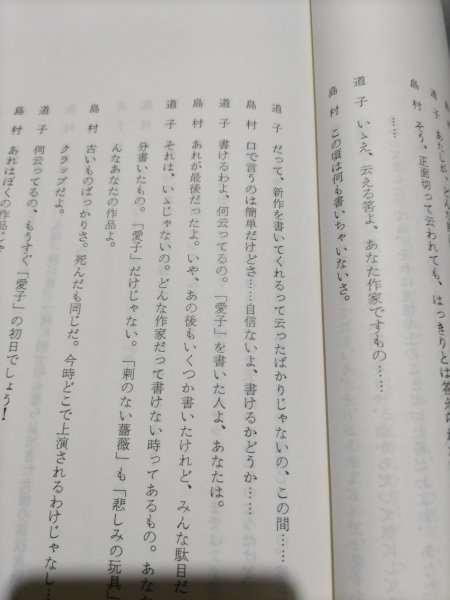 道子 あたしが、どんな
島村 そう、正面切って云われても、はっきりとは答え
……
道子 いゝえ、云える筈よ、あなた作家ですもの……
島村 この頃は何も書いちゃいないさ。
道子 だって、新作を書いてくれるって云ったばかりじゃないの、この間……
島村 口で言うのは簡単だけどさ……自信ないよ、書けるかどうか……
道子 書けるわよ、何云ってるの。「愛子」を書いた人よ、あなたは。
島村 あれが最後だったよ。いや、あの後もいくつか書いたけれど、みんな駄目だ
道子 それは、いゝじゃないの。どんな作家だって書けない時ってあるもの。あなた
分書いたもの。「愛子」だけじゃない。「刺のない薔薇」も「悲しみの玩具」
んなあなたの作品よ。
島村 古いものばっかりさ。死んだも同じだ。今時どこで上演されるわけじゃなし…
クラップだよ。
道子 何云ってるの、もうすぐ「愛子」の初日でしょう！
島村 あれはぼくの作品じゃ